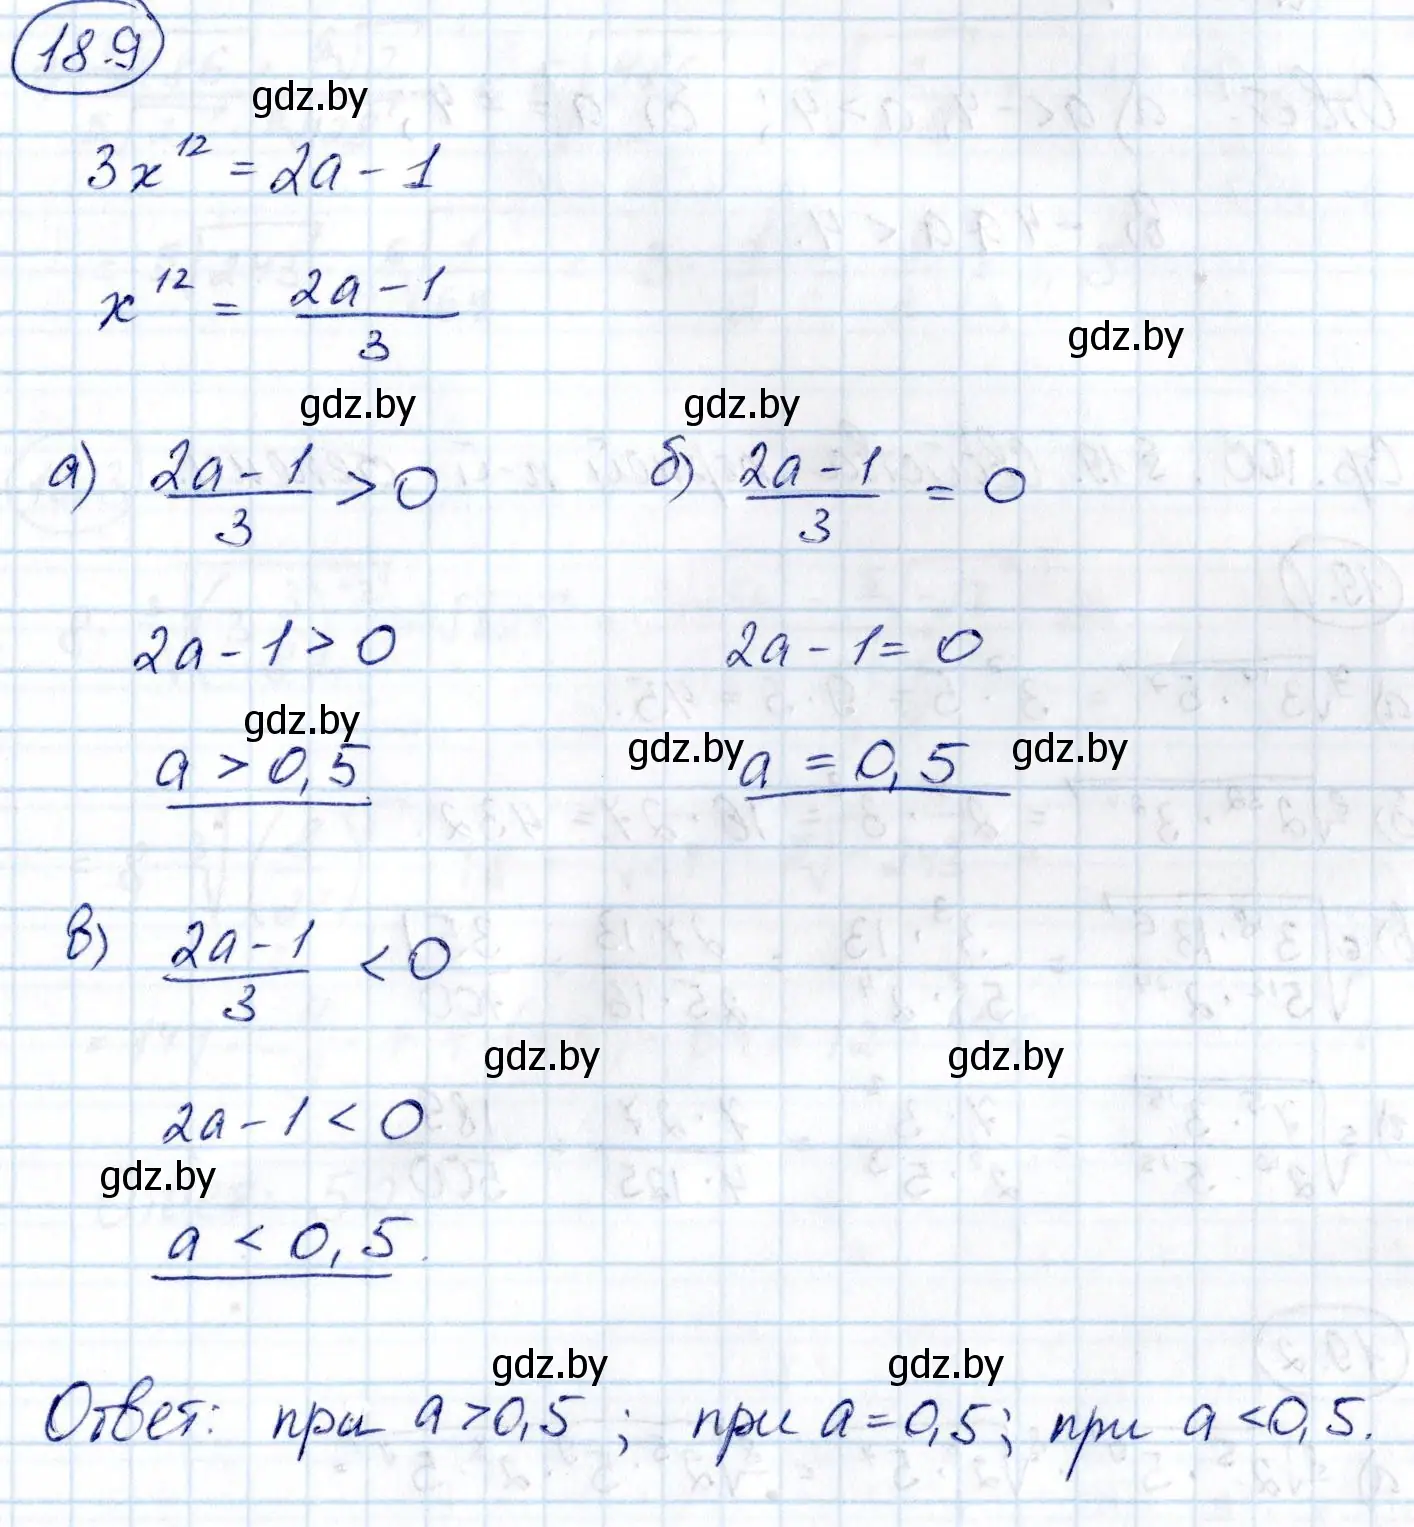 18.9
gdz.by
3x¹² = 2a - 1
x¹² = (2a - 1)/3
gdz.by
gdz.by gdz.by
а) (2a - 1)/3 > 0 б) (2a - 1)/3 = 0
2a - 1 > 0 2a - 1 = 0
gdz.by gdz.by gdz.by
a > 0,5 a = 0,5
в) (2a - 1)/3 < 0
gdz.by gdz.by
2a - 1 < 0
gdz.by
a < 0,5.
gdz.by gdz.by
Ответ: при a > 0,5 ; при a = 0,5; при a < 0,5.